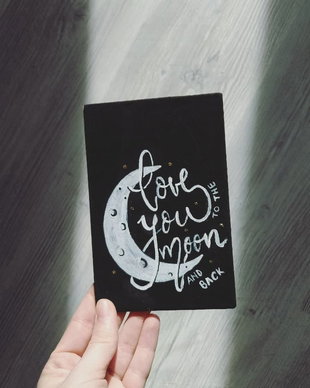 love
you
TO THE
moon
AND
BACK